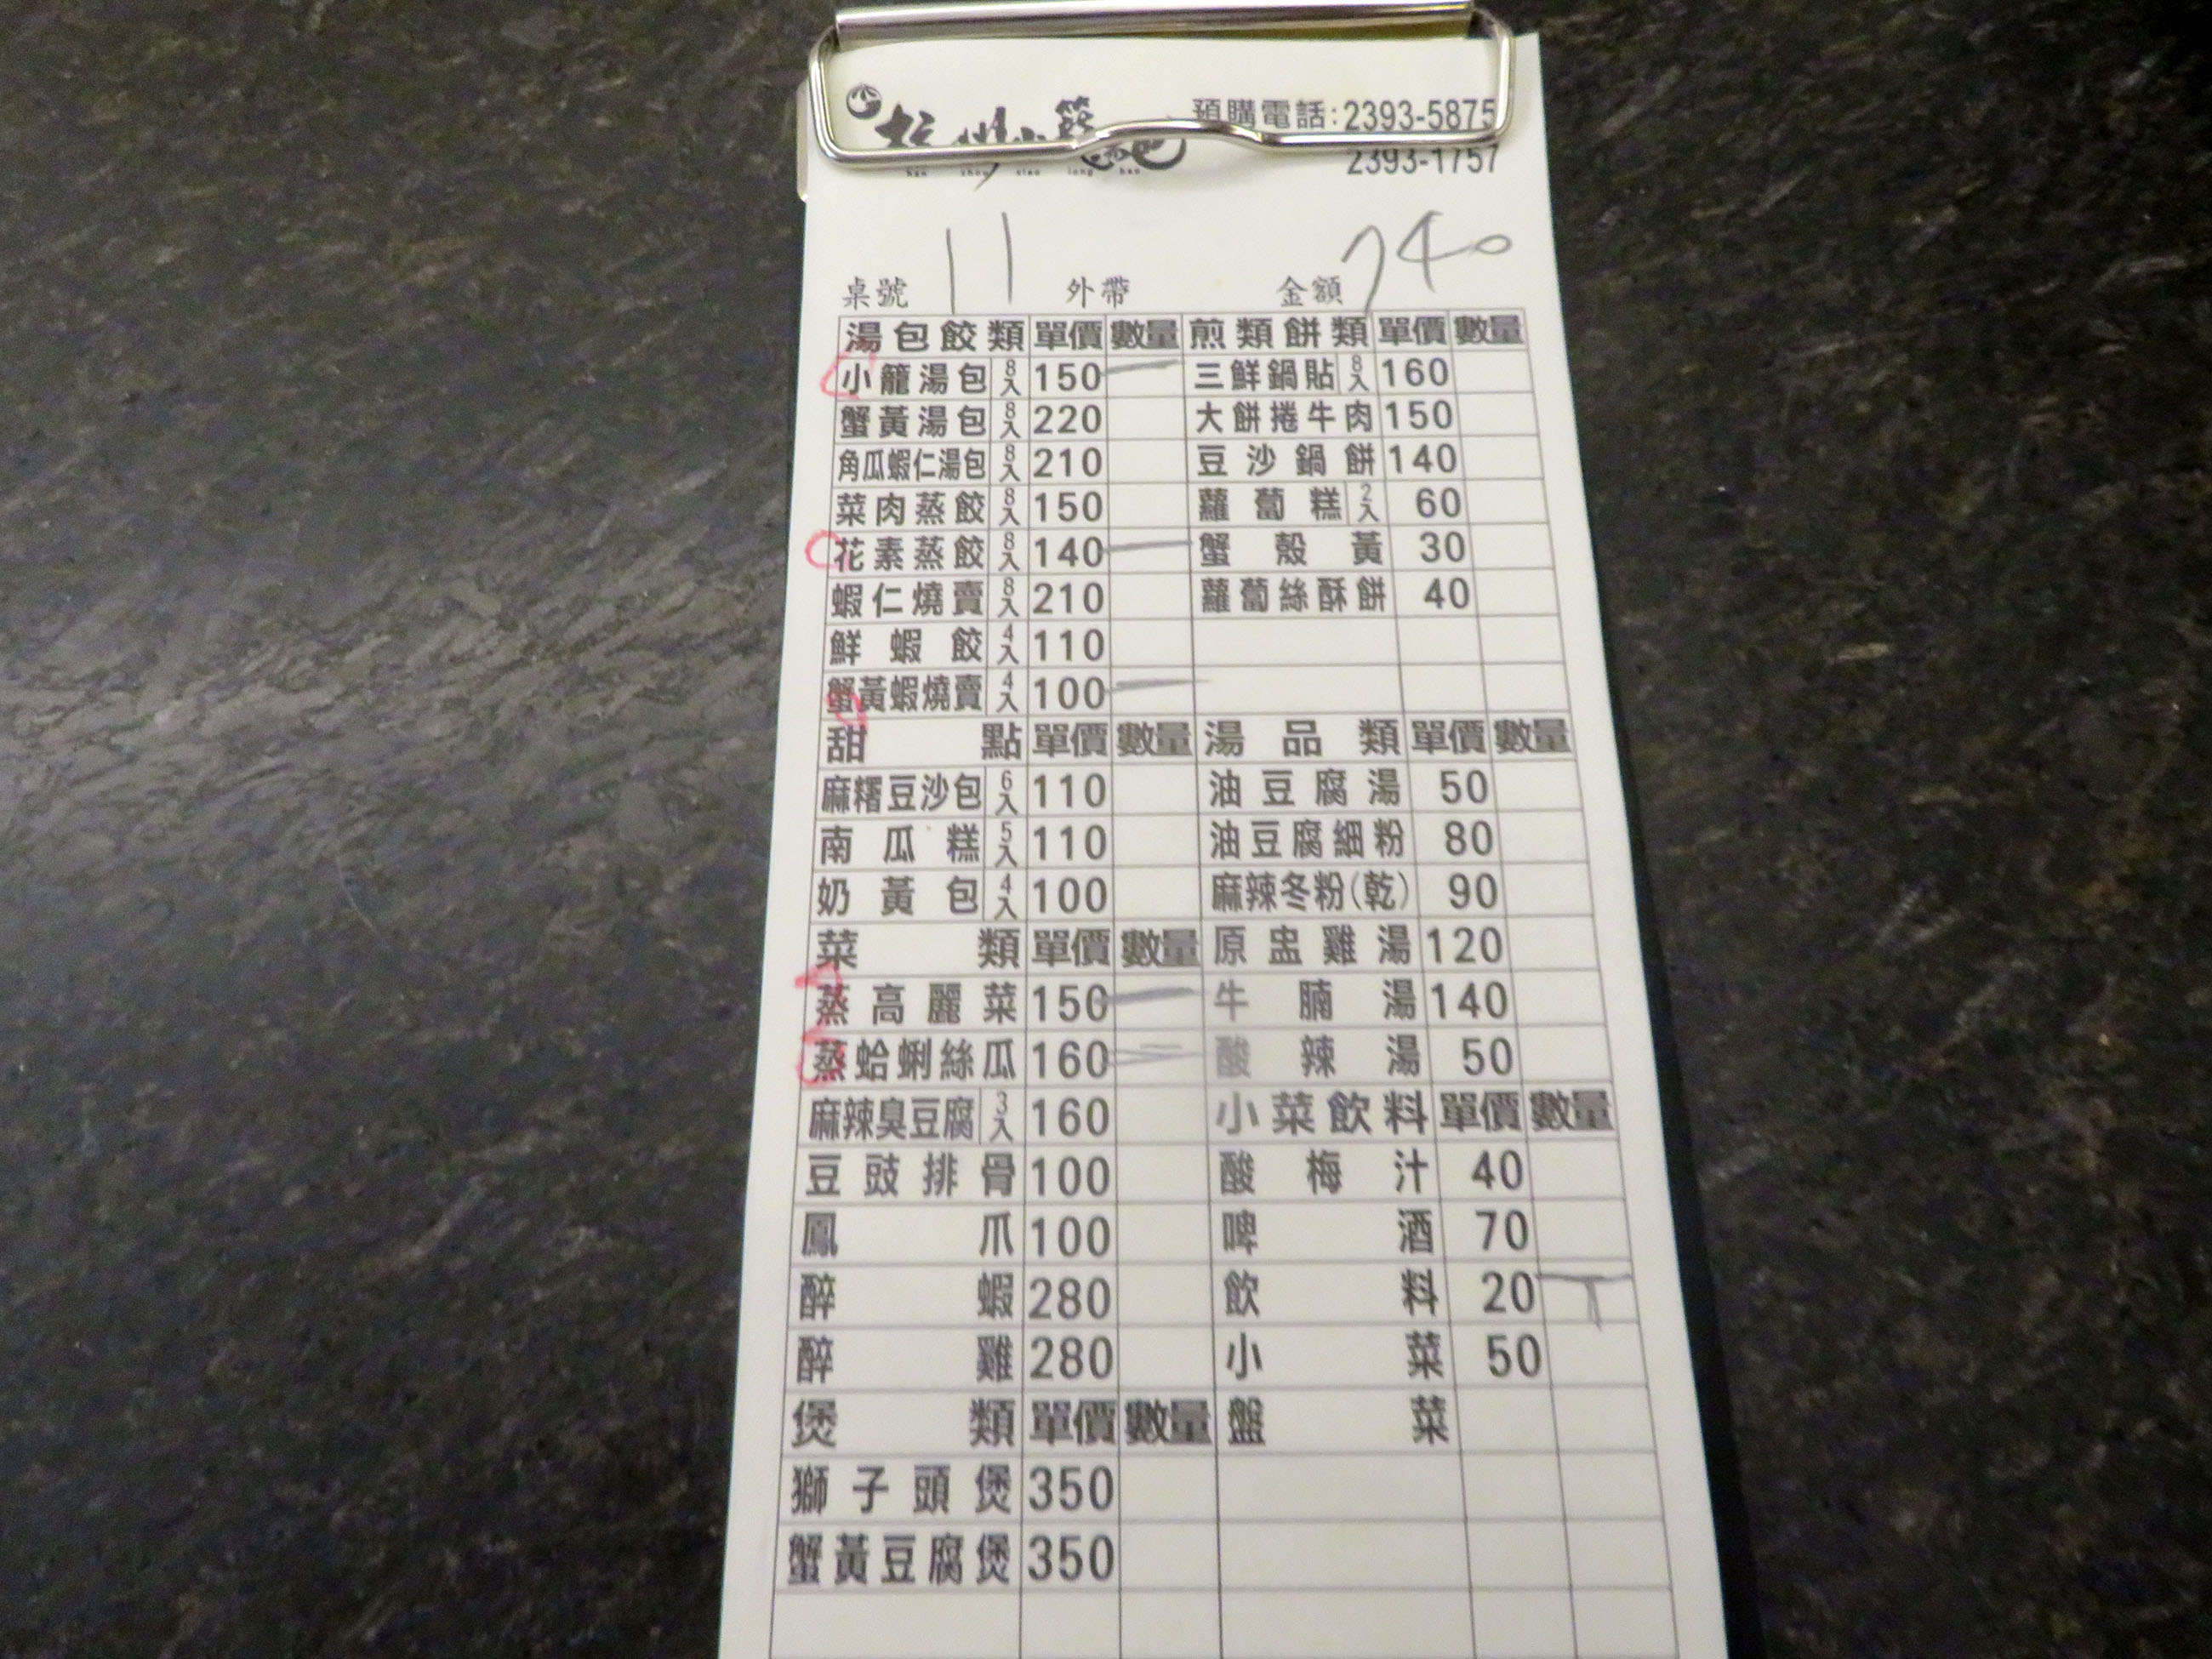 預購電話:2393-5875
2393-1757
桌號 11 外帶 金額 740
湯包餃類 單價 數量 煎類餅類 單價 數量
小籠湯包 8入 150 一 三鮮鍋貼 8入 160
蟹黃湯包 8入 220 大餅捲牛肉 150
角瓜蝦仁湯包 8入 210 豆沙鍋餅 140
菜肉蒸餃 8入 150 蘿蔔糕 2入 60
花素蒸餃 8入 140 一 蟹殼黃 30
蝦仁燒賣 8入 210 蘿蔔絲酥餅 40
鮮蝦餃 4入 110
蟹黃蝦燒賣 4入 100 一
甜點 單價 數量 湯品類 單價 數量
麻糬豆沙包 6入 110 油豆腐湯 50
南瓜糕 5入 110 油豆腐細粉 80
奶黃包 4入 100 麻辣冬粉(乾) 90
菜類 單價 數量 原盅雞湯 120
蒸高麗菜 150 一 牛腩湯 140
蒸蛤蜊絲瓜 160 一 酸辣湯 50
麻辣臭豆腐 3入 160 小菜飲料 單價 數量
豆豉排骨 100 酸梅汁 40
鳳爪 100 啤酒 70
醉蝦 280 飲料 20 T
醉雞 280 小菜 50
煲類 單價 數量 盤菜
獅子頭煲 350
蟹黃豆腐煲 350